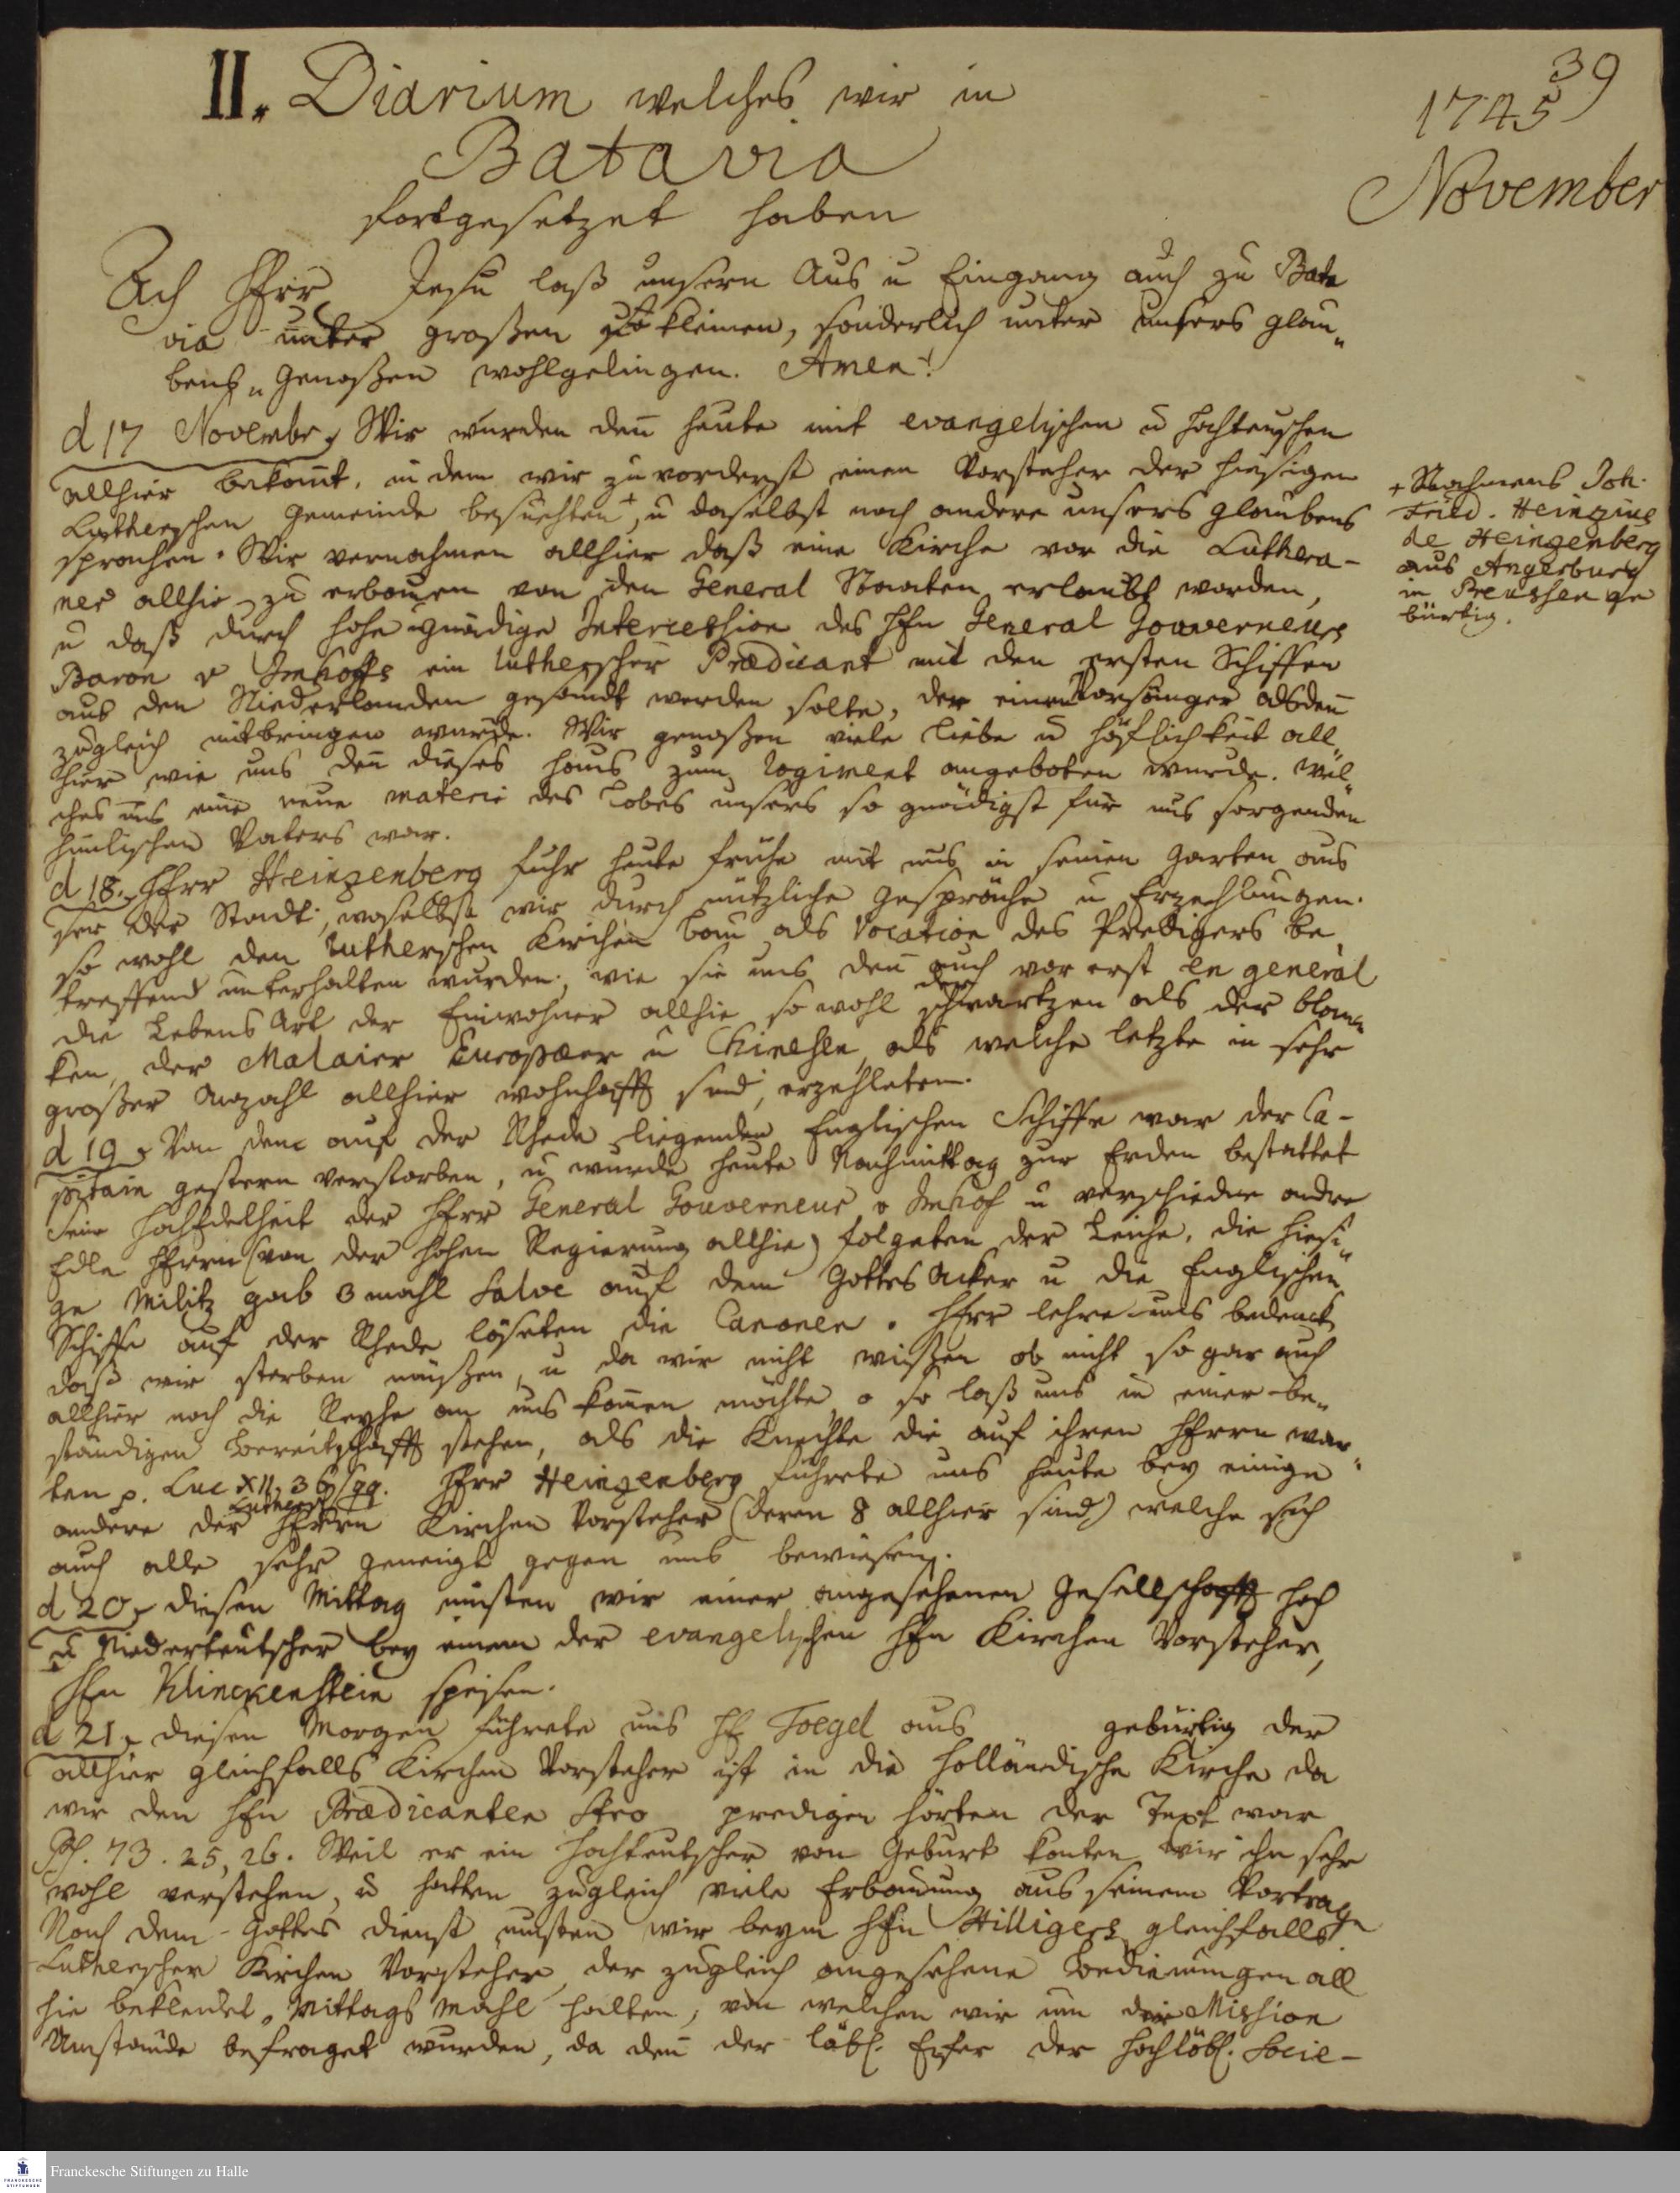 39
1745
November
II. Diarium welches wir in
Batavia
fortgesetzet haben
Ach HErr Jesu laß unsern Aus u Eingang auch zu Bata
via unter großen u kleinen, sonderlich unter unsers glau„
bens„Genoßen wohlgelingen. Amen!
d 17 Novembr, Wir wurden deñ heute mit evangelischen u hochteuschen
allhier bekañt, in dem wir zuvorderst einen Vorsteher der hiesigen
Lutherschen Gemeinde besuchten +, u daselbst noch andere unsers glaubens
sprachen. Wir vernahmen allhier daß eine Kirche vor die Luthera-
ner allhie zu erbauen von den General Staaten erlaubt worden,
u daß durch hohe gnädige Intercession des HEn General Gouverneurs
Baron v Imhoffs ein lutherscher Prædicant mit den ersten Schiffen
aus den Niederlanden gesandt werden solte, der einen Vorsänger alsdeñ
zugleich mitbringen würde. Wir genoßen viele Liebe u höflichkeit all„
hier wie uns deñ dieses haus zum logiment angeboten wurde. wel„
ches uns eine neue materie des Lobes unsers so gnädigst für uns sorgenden
himlischen Vaters war.
+ Nahmens Joh.
Fried. Heinzius
de Heinzenberg
aus Angerburg
in Preussen ge
bürtig.
d 18. HErr Heinzenberg fuhr heute frühe mit uns in seinen Garten aus
ser der Stadt, woselbst wir durch nützliche gespräche u Erzehlungen.
so wohl den lutherschen Kirchen bau als Vocation des Predigers be„
treffend unterhalten wurden, wie sie uns deñ auch vor erst en general
die Lebens Art der Einwohner allhie so wohl der schwartzen als der blan„
ken, der Malaier Europæer u Chinesen, als welche letzte in sehr
großer Anzahl allhier wohnhafft sind, erzehleten.
d 19, Von dem auf der Rhede liegenden Englischen Schiffe war der Ca-
pitain gestern verstorben, u wurde heute Nachmittag zur Erden bestattet
Seine HochEdelheit der HErr General Gouverneur v Imhof u verschiedne andre
Edle HErren (von der hohen Regierung allhie) folgeten der Leiche, die hiesi„
ge Militz gab 3 mahl Salve auf dem Gottes Acker u die Englischen
Schiffe auf der Rhede löseten die Canonen. HErr lehre uns bedencken
daß wir sterben müßen, u da wir nicht wißen ob nicht so gar auch
allhier noch die Reyhe an uns komen möchte, o so laß uns in einer be„
ständigen Bereitschafft stehen, als die Knechte die auf ihren HErrn war„
ten p. Luc XII, 36 sqq. HErr Heinzenberg führete uns heute bey einige
andere der Luthersch HErrn Kirchen Vorsteher (deren 8 allhier sind) welche sich
auch alle sehr geneigt gegen uns bewiesen.
d 20, diesen Mittag musten wir einer angesehenen Gesellschafft hoch
u Niederteutscher bey einem der evangelischen HEn Kirchen Vorsteher,
HEn Klinckenstein speisen.
d 21, diesen Morgen führete uns HE Toegel aus gebürtig der
allhier gleichfalls Kirchen Vorsteher ist in die holländische Kirche da
wir den HEn Prædicanten predigen hörten der Text war
Ps. 73. 25, 26. Weil er ein Hochteutscher von Geburt konten wir ihn sehr
wohl verstehen, u hatten zugleich viele Erbauung aus seinem Vortrage
Nach dem Gottes dienst musten wir beym HEn Hilligers gleichfalls
Lutherscher Kirchen Vorsteher, der zugleich angesehene Bedienungen all
hie bekleidet, Mittags Mahl halten, von welchen wir um der Mission
Umstände befraget wurden, da deñ der löbl. Eifer der hochlöbl. Socie-
Franckesche Stiftungen zu Halle